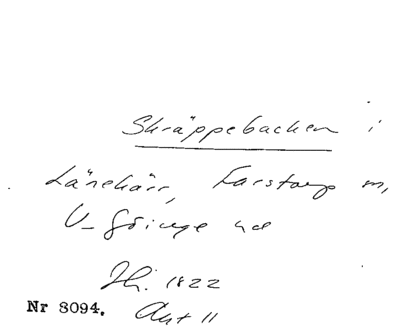 Skräppebacken i
Länehärr, Farstorp sn,
V. Göinge hd
Hi. 1822
Nr 8094. Akt 11